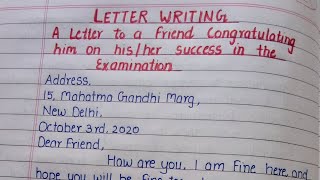 LETTER WRITING
A Letter to a friend Congratulating
him on his/her success in the
Examination
Address,
15, Mahatma Gandhi Marg,
New Delhi,
October 3rd, 2020
Dear Friend,
How are you, I am fine here, and
hope you will be fine